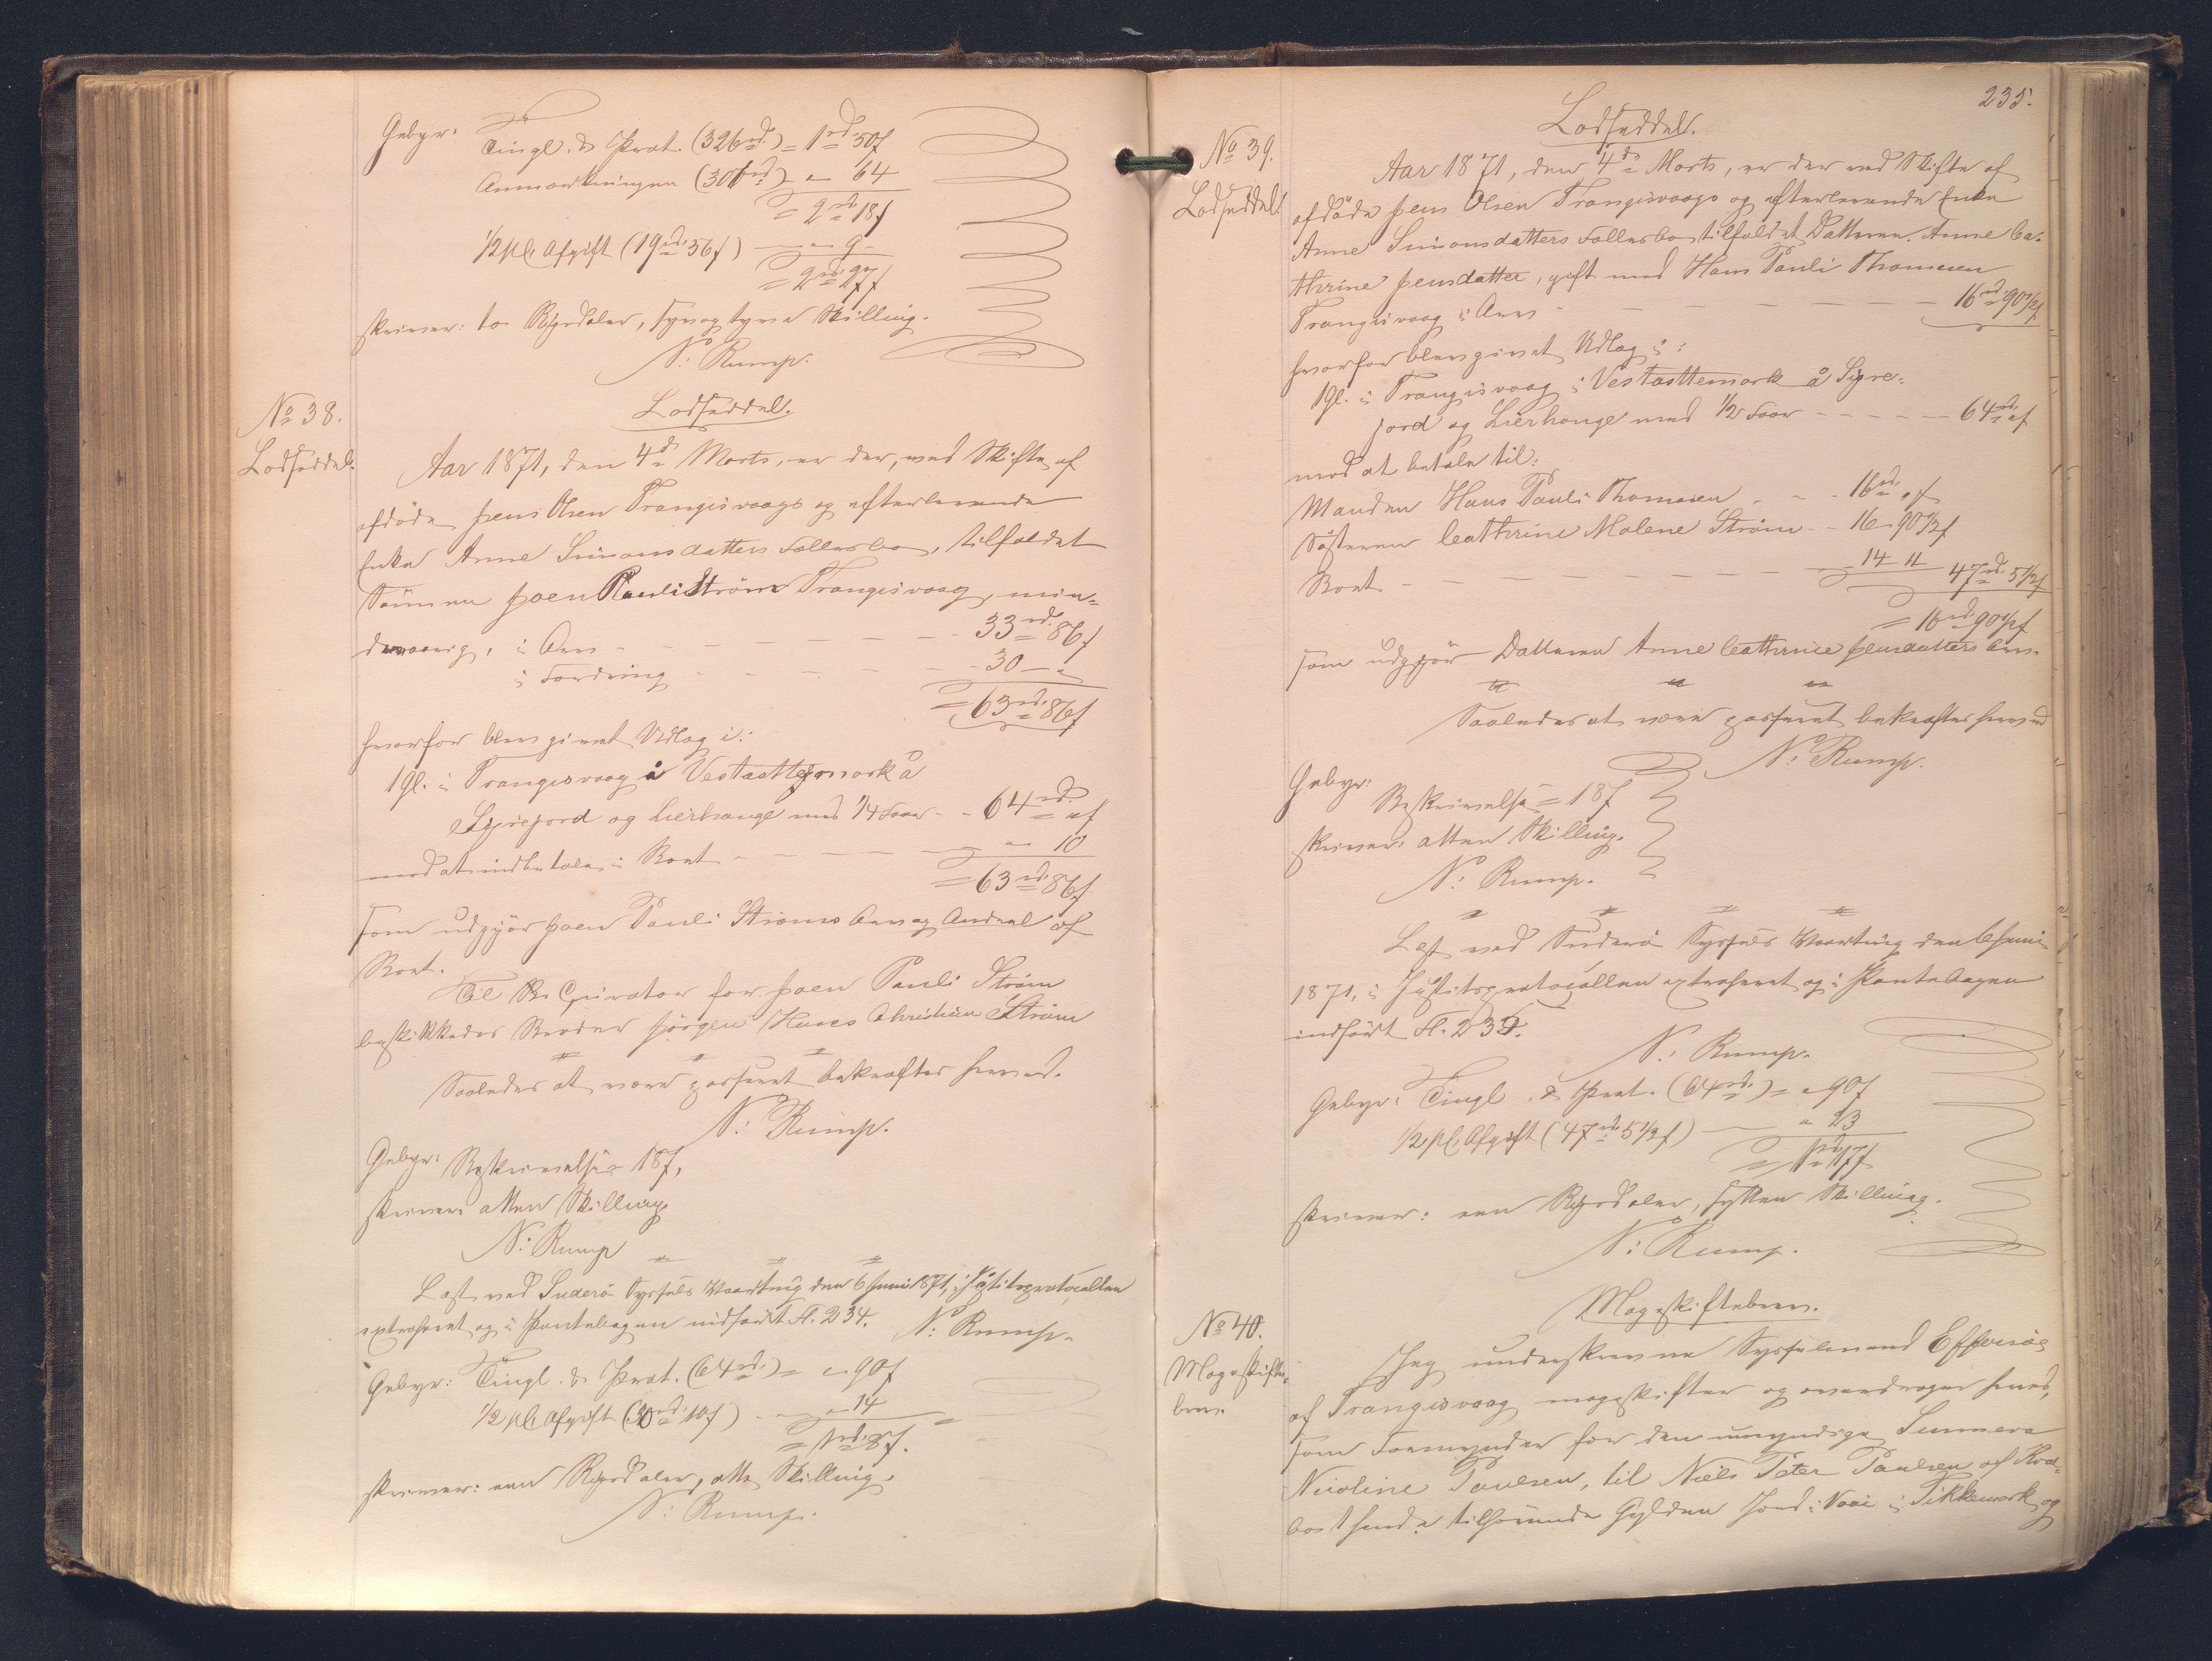 Gebyr:
Tingl. & Prot. (326rd.) = 1rd 50ſ
Anmærkningen (306rd) - " 64
= 2rd 18ſ
1/2 pCt Afgift (19rd 56ſ) — " 9
= 2rd 27ſ
skriver: to Rigsdaler, syvogtyve Skilling.
N: Rump.
No 38.
Lodseddel.
Lodseddel.
Aar 1871, den 4de Marts, er der, ved Skifte af
afdøde Jens Olsen Trangisvaags og efterlevende
Enke Anne Simonsdatters Fællesbo, tilfaldet
Sønnen Joen Pauli Strøm Trangisvaag, min-
dreaarig, i Arv - - - 33rd 86ſ
i Fordring - - - 30 - "
= 63rd 86ſ
hvorfor blev givet Udlag i:
1 Gl. i Trangisvaag i Vestaattemark å
Sigrejord og Lierhauge med 1/4 Faar - - 64rd "ſ
mod at indbetale i Boet - - - " 10
= 63rd 86ſ
som udgjør Joen Pauli Strøms Arv og Andeel af
Boet.
Til Curator for Joen Pauli Strøm
beskikkedes Broder Jørgen Hans Christian Strøm
Saaledes at være passeret bekræftes herved.
N: Rump.
Gebyr: Beskrivelse = 18ſ,
skriver atten Skilling
N: Rump
Læst ved Suderø Syssels Vaarting den 6 Juni 1871, i Justitsprotocollen
extraheret og i Pantebogen indført Fl. 234. N: Rump.
Gebyr: Tingl. & Prot. (64rd.) = " 90ſ
1/2 pCt Afgift (30rd 10ſ) - " 14
= 1rd 8ſ.
skriver: een Rigsdaler, otte Skilling.
N: Rump.
235.
No 39.
Lodseddel.
Lodseddel.
Aar 1871, den 4de Marts, er der ved Skifte af
afdøde Jens Olsen Trangisvaags og efterlevende Enke
Anne Simonsdatters Fællesbo tilfaldet Datteren Anne Ca-
thrine Jensdatter, gift med Hans Pauli Thomsen
Trangisvaag i Arv - - - 16rd 90½ſ
hvorfor blev givet Udlag i:
1 Gl. i Trangisvaag i Vestaattemark å Sigre-
jord og Lierhauge med 1/2 Faar - - - 64rd "ſ
mod at betale til:
Manden Hans Pauli Thomsen - - - 16rd "ſ
Søsteren Cathrine Malene Strøm - - 16 - 90½ſ
Boet - - - 14 - 11 47rd 5½ſ
= 16rd 90½ſ
som udgjør Datteren Anne Cathrine Jensdatters Arv.
Saaledes at være passeret bekræftes herved
N: Rump.
Gebyr:
Beskrivelse = 18ſ
skriver: atten Skilling.
N: Rump.
Læst ved Suderø Syssels Vaarting den 6 Juni
1871, i Justitsprotocollen extraheret og i Pantebogen
indført Fl. 235.
N: Rump.
Gebyr: Tingl. & Prot. (64rd.) = " 90ſ
1/2 pCt Afgift (47rd 5½ſ) — " 23
= 1rd 17ſ
skriver: een Rigsdaler, sytten Skilling.
N: Rump.
No 40.
Mageskifte-
brev.
Mageskiftebrev.
Jeg underskrevne Sysselmand Effersøe
af Trangisvaag mageskifter og overdrager herved,
som Formynder for den umyndige Sunneva
Nicoline Poulsen, til Niels Peter Poulsen af Hov-
bo 1 hende tilhørende Gylden Jord i Vaai i Tikkemork og